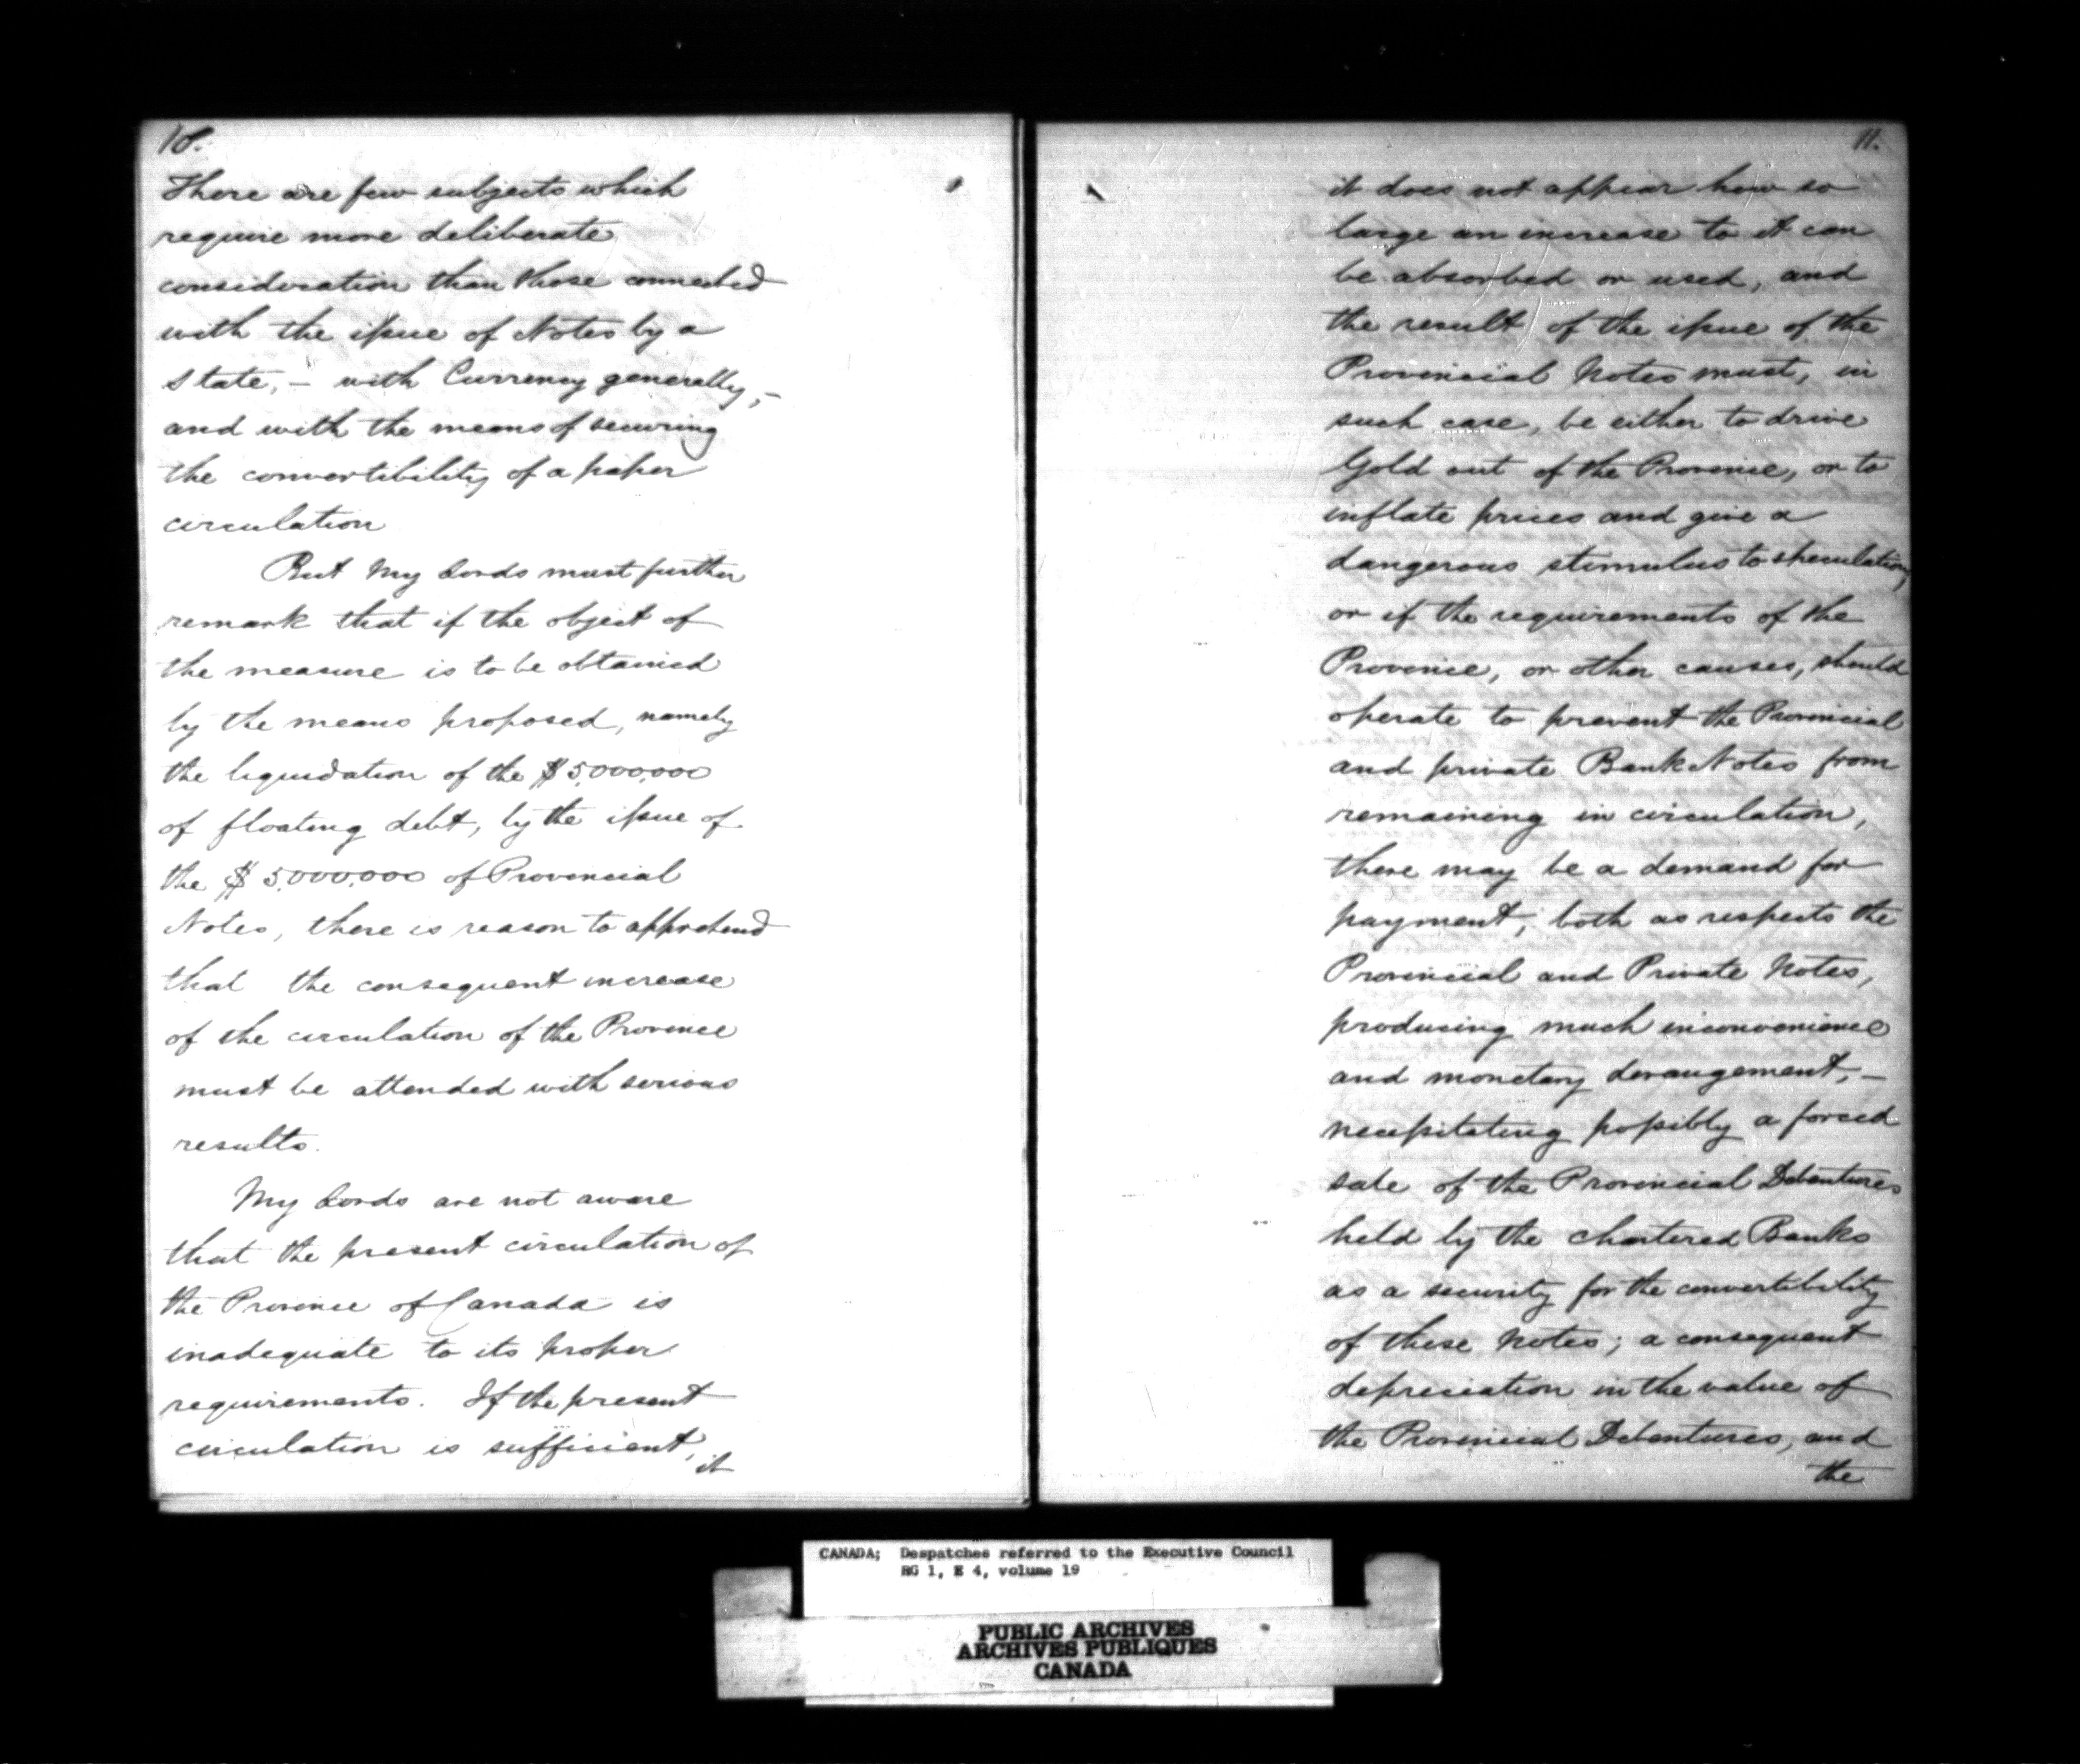 10.
There are few subjects which
require more deliberate
consideration than those connected
with the issue of Notes by a
State, – with Currency generally, –
and with the means of securing
the convertibility of a paper
circulation
But My Lords must further
remark that if the object of
the measure is to be obtained
by the means proposed, namely
the liquidation of the $5,000,000
of floating debt, by the issue of
the $5,000,000 of Provincial
Notes, there is reason to apprehend
that the consequent increase
of the circulation of the Province
must be attended with serious
results.
My Lords are not aware
that the present circulation of
the Province of Canada is
inadequate to its proper
requirements. If the present
circulation is sufficient,
it
11.
it does not appear how so
large an increase to it can
be absorbed or used, and
the result of the issue of the
Provincial Notes must, in
such case, be either to drive
Gold out of the Province, or to
inflate prices and give a
dangerous stimulus to speculation;
or if the requirements of the
Province, or other causes, should
operate to prevent the Provincial
and private Bank Notes from
remaining in circulation,
there may be a demand for
payment, both as respects the
Provincial and Private Notes,
producing much inconvenience
and monetary derangement, –
necessitating possibly a forced
sale of the Provincial Debentures
held by the chartered Banks
as a security for the convertibility
of these Notes; a consequent
depreciation in the value of
the Provincial Debentures, and
the
CANADA; Despatches referred to the Executive Council
RG 1, E 4, volume 19
PUBLIC ARCHIVES
ARCHIVES PUBLIQUES
CANADA